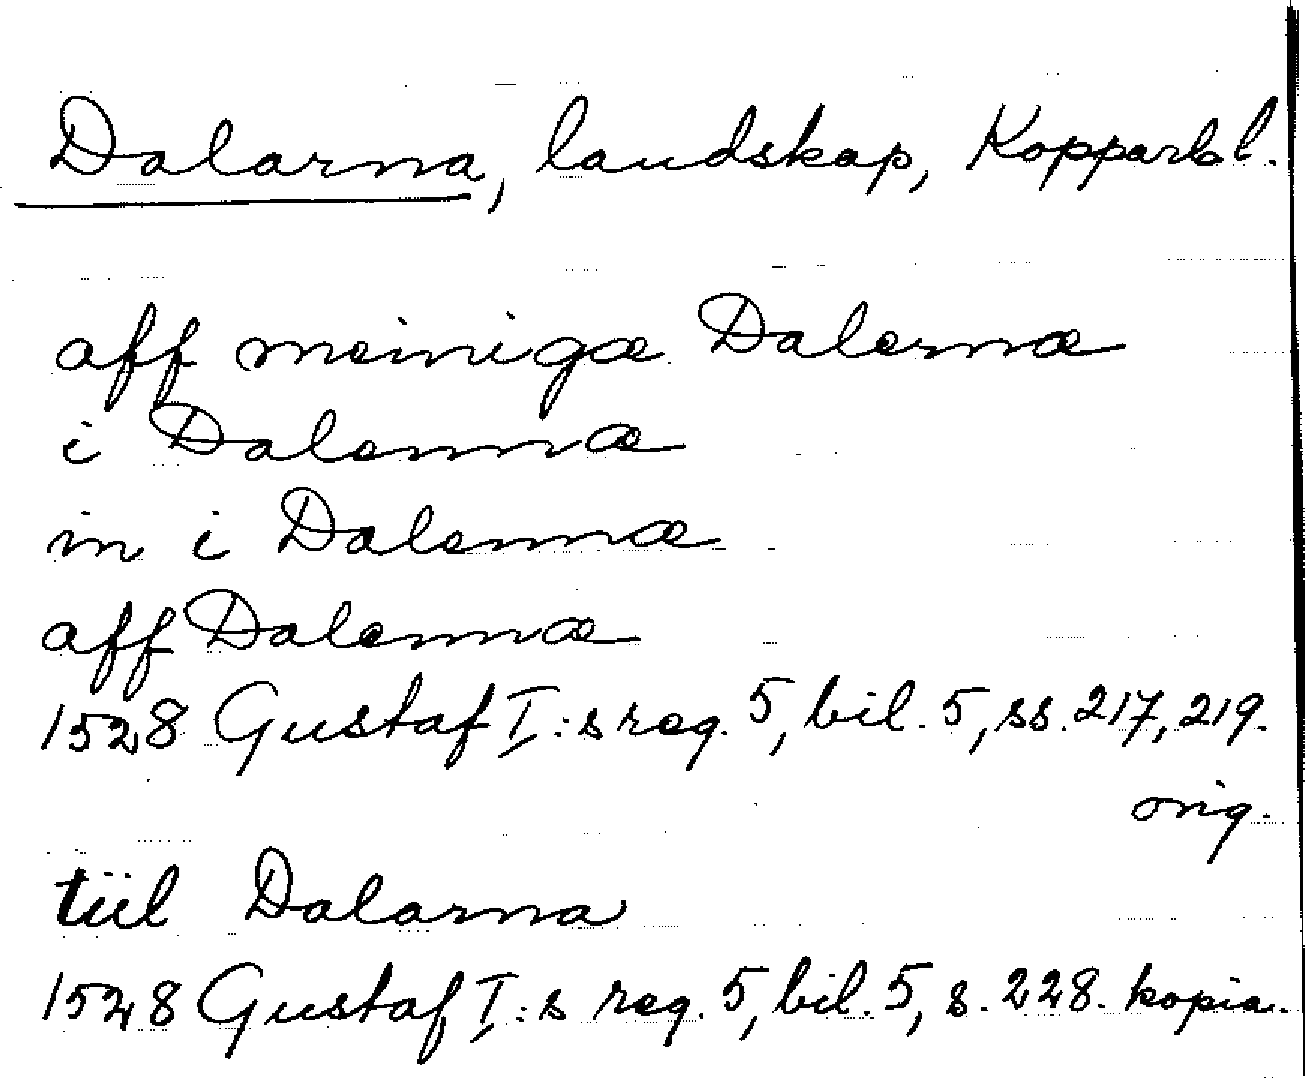 Dalarna, landskap, Kopparb l.
aff meinigæ Dalernæ
i Dalernæ
in i Dalernæ
aff Dalernæ
1528 Gustaf I:s reg. 5, bil. 5, ss. 217, 219.
orig.
tiil Dalarna
1528 Gustaf I:s reg. 5, bil. 5, s. 228. kopia.